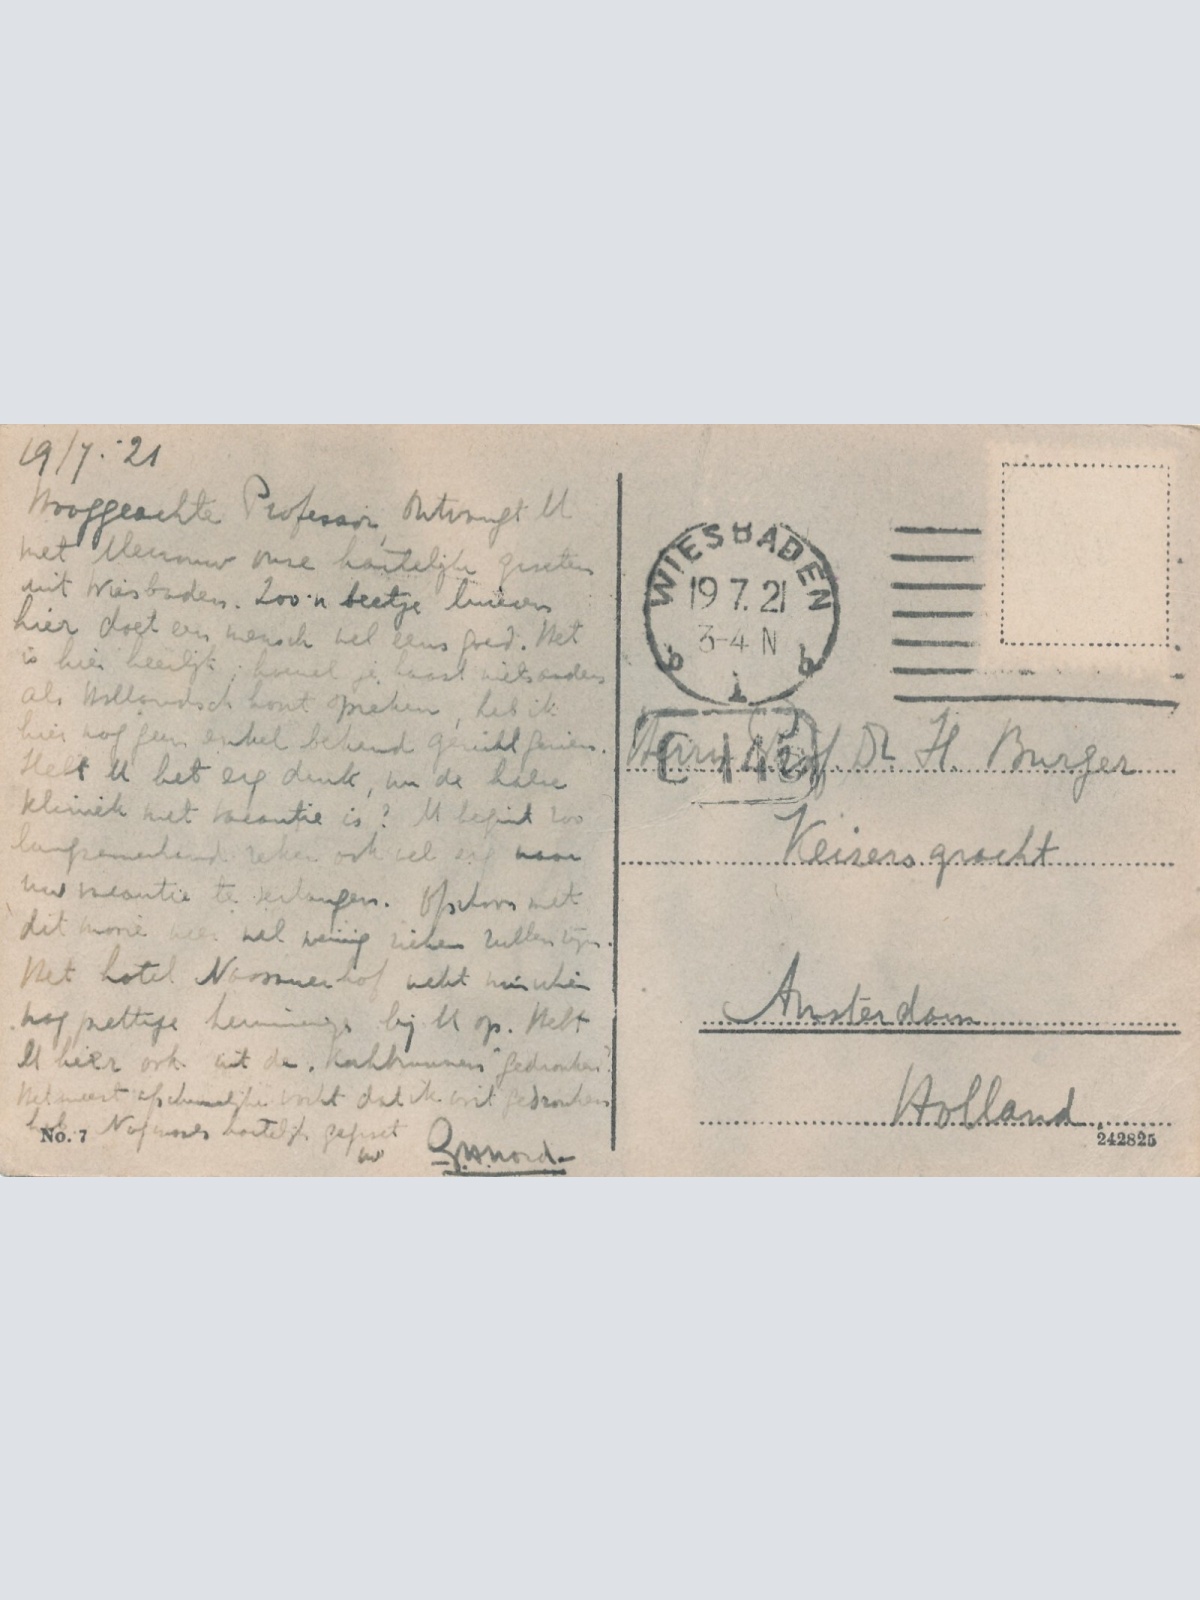 19/7.'21
Hooggeachte Professor, Ontvangt U
met Mevrouw onze hartelijke groeten
uit Wiesbaden. Zoo'n beetje luieren
hier doet een mensch wel eens goed. Het
is hier heerlijk; hoewel je haast niets anders
als Hollandsch hoort spreken, heb ik
hier nog geen enkel bekend gezicht gezien.
Hebt U het erg druk, nu de halve
kliniek met vacantie is? U begint zoo
langzamerhand zeker ook wel erg naar
uw vacantie te verlangen. Ofschoon met
dit mooie weer wel weinig zieken zullen zijn.
Het hotel Nassauerhof wekt misschien
nog prettige herinneringen bij U op. Hebt
U hier ook uit de "Kochbrunnen" gedronken?
Het meest afschuwelijke vocht dat ik ooit gedronken
heb. Nogmaals hartelijk gegroet
uw
No. 7
WIESBADEN
19 7. 21
3-4 N
b 1 b
Herrn Prof Dr. H. Burger
Keizersgracht
Amsterdam
Holland
242825